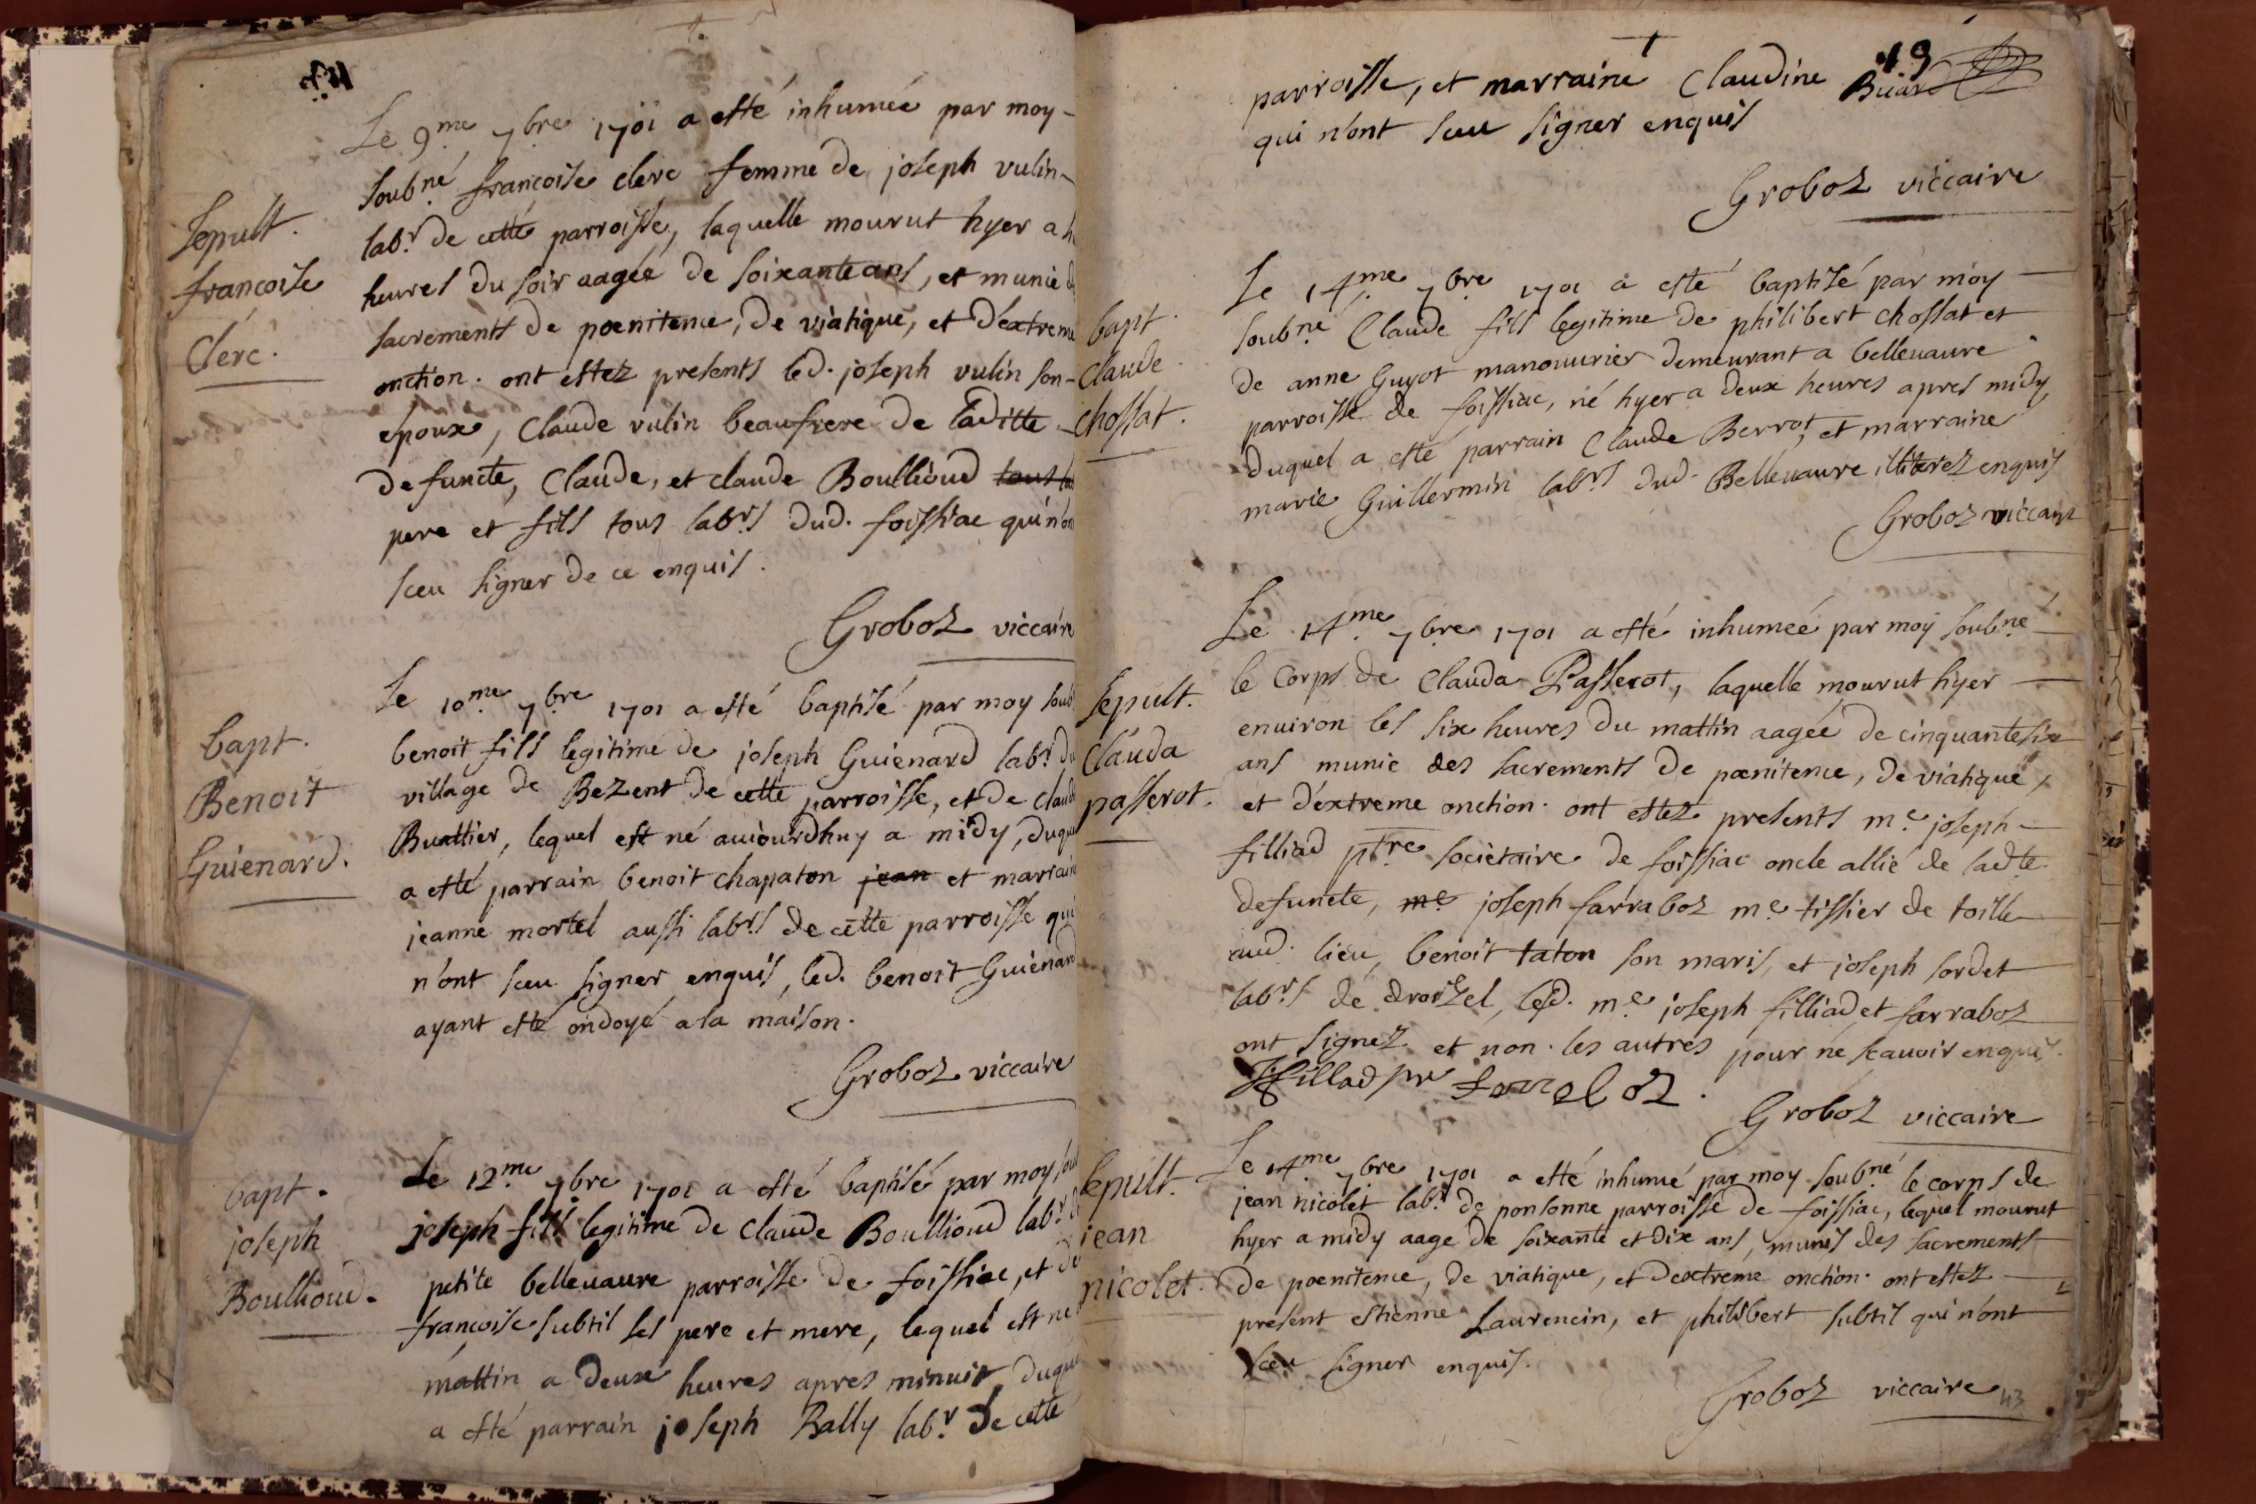 Le 9.me 7bre 1701 a esté inhumée par moy
soubné françoise clerc femme de joseph vulin
Sepult.
françoise
Clerc.
labr. de cette parroisse, laquelle mourut hyer a
heures du soir aagée de soixante ans, et munie
sacrements de poenitence, de viatique, et d'extreme
onction. ont estez presents led. joseph vulin son
epoux, Claude vulin beaufrere de laditte
defuncte, Claude, et claude Boullioud tous
pere et fils tous labrs dud. foissiac qui n'on
sceu signer de ce enquis.
Groboz viccaire
Le 10.me 7bre 1701 a esté baptisé par moy soub
bapt.
Benoit
Guienard.
benoit fils legitime de joseph Guienard labr. du
village de Bezent de cette parroisse, et de claud
Buattier, lequel est né auiourdhuy a midy, duquel
a esté parrain benoit chapaton jean et marraine
jeanne mortel aussi labrs de cette parroisse qui
n'ont sceu signer enquis, led. benoit Guienard
ayant esté ondoyé a la maison.
Groboz viccaire
bapt.
joseph
Boullioud.
Le 12.me 7bre 1701 a esté baptisé par moy soub
joseph fils legitime de Claude Boullioud labr.
petite bellevaure parroisse de foissiac, et de
françoise subtil ses pere et mere, lequel est né
mattin a deux heures apres minuit, duquel
a esté parrain joseph Bally labr. de cette
19
parroisse, et marraine Claudine Buar
qui n'ont sceu signer enquis
Groboz viccaire
bapt.
Claude
Chossat.
Le 14.me 7bre 1701 a esté baptisé par moy
soubné Claude fils legitime de philibert chossat et
de anne Guyot manouurier demeurant a bellevaure
parroisse de foissiac, né hyer a deux heures apres midy,
duquel a esté parrain Claude Berrot, et marraine
marie Guillermin labrs dud. Bellevaure illiterez enquis
Groboz viccaire
Sepult.
Clauda
passerot.
Le 14.me 7bre 1701 a esté inhumée par moy soubné
le corps de Clauda Passerot, laquelle mourut hyer
enuiron les six heures du mattin aagée de cinquante six
ans munie des sacrements de poenitence, de viatique,
et d'extreme onction. ont estez presents me. joseph
filliad ptre societaire de foissiac oncle allié de ladte.
defuncte, me joseph farraboz me. tissier de toille
aud. lieu, benoit taton son maris, et joseph sordet
labrs de droizel, led. me. joseph filliad et farraboz
ont signez et non les autres pour ne scauoir enquis.
Jfillad ptre farreloz.
Groboz viccaire
Sepult.
jean
nicolet.
Le 14.me 7bre 1701 a esté inhumé par moy soubné le corps de
jean nicolet labr. de ponsonne parroisse de foissiac, lequel mourut
hyer a midy aage de soixante et dix ans, munis des sacrements
de poenitence, de viatique, et d'extreme onction. ont estez
present estienne Laurencin, et philibert subtil qui n'ont
sceu signer enquis.
Groboz viccaire
43